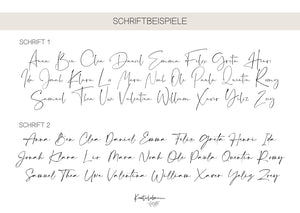 SCHRIFTBEISPIELE
SCHRIFT 1
Anna Ben Clea Daniel Emma Felix Greta Henri
Ida Jonah Klara Lio Mara Noah Ole Paula Quentin Romy
Samuel Thea Uwe Valentina William Xaver Yeliz Zoey
SCHRIFT 2
Anna Ben Clea Daniel Emma Felix Greta Henri Ida
Jonah Klara Lio Mara Noah Ole Paula Quentin Romy
Samuel Thea Uwe Valentina William Xaver Yeliz Zoey